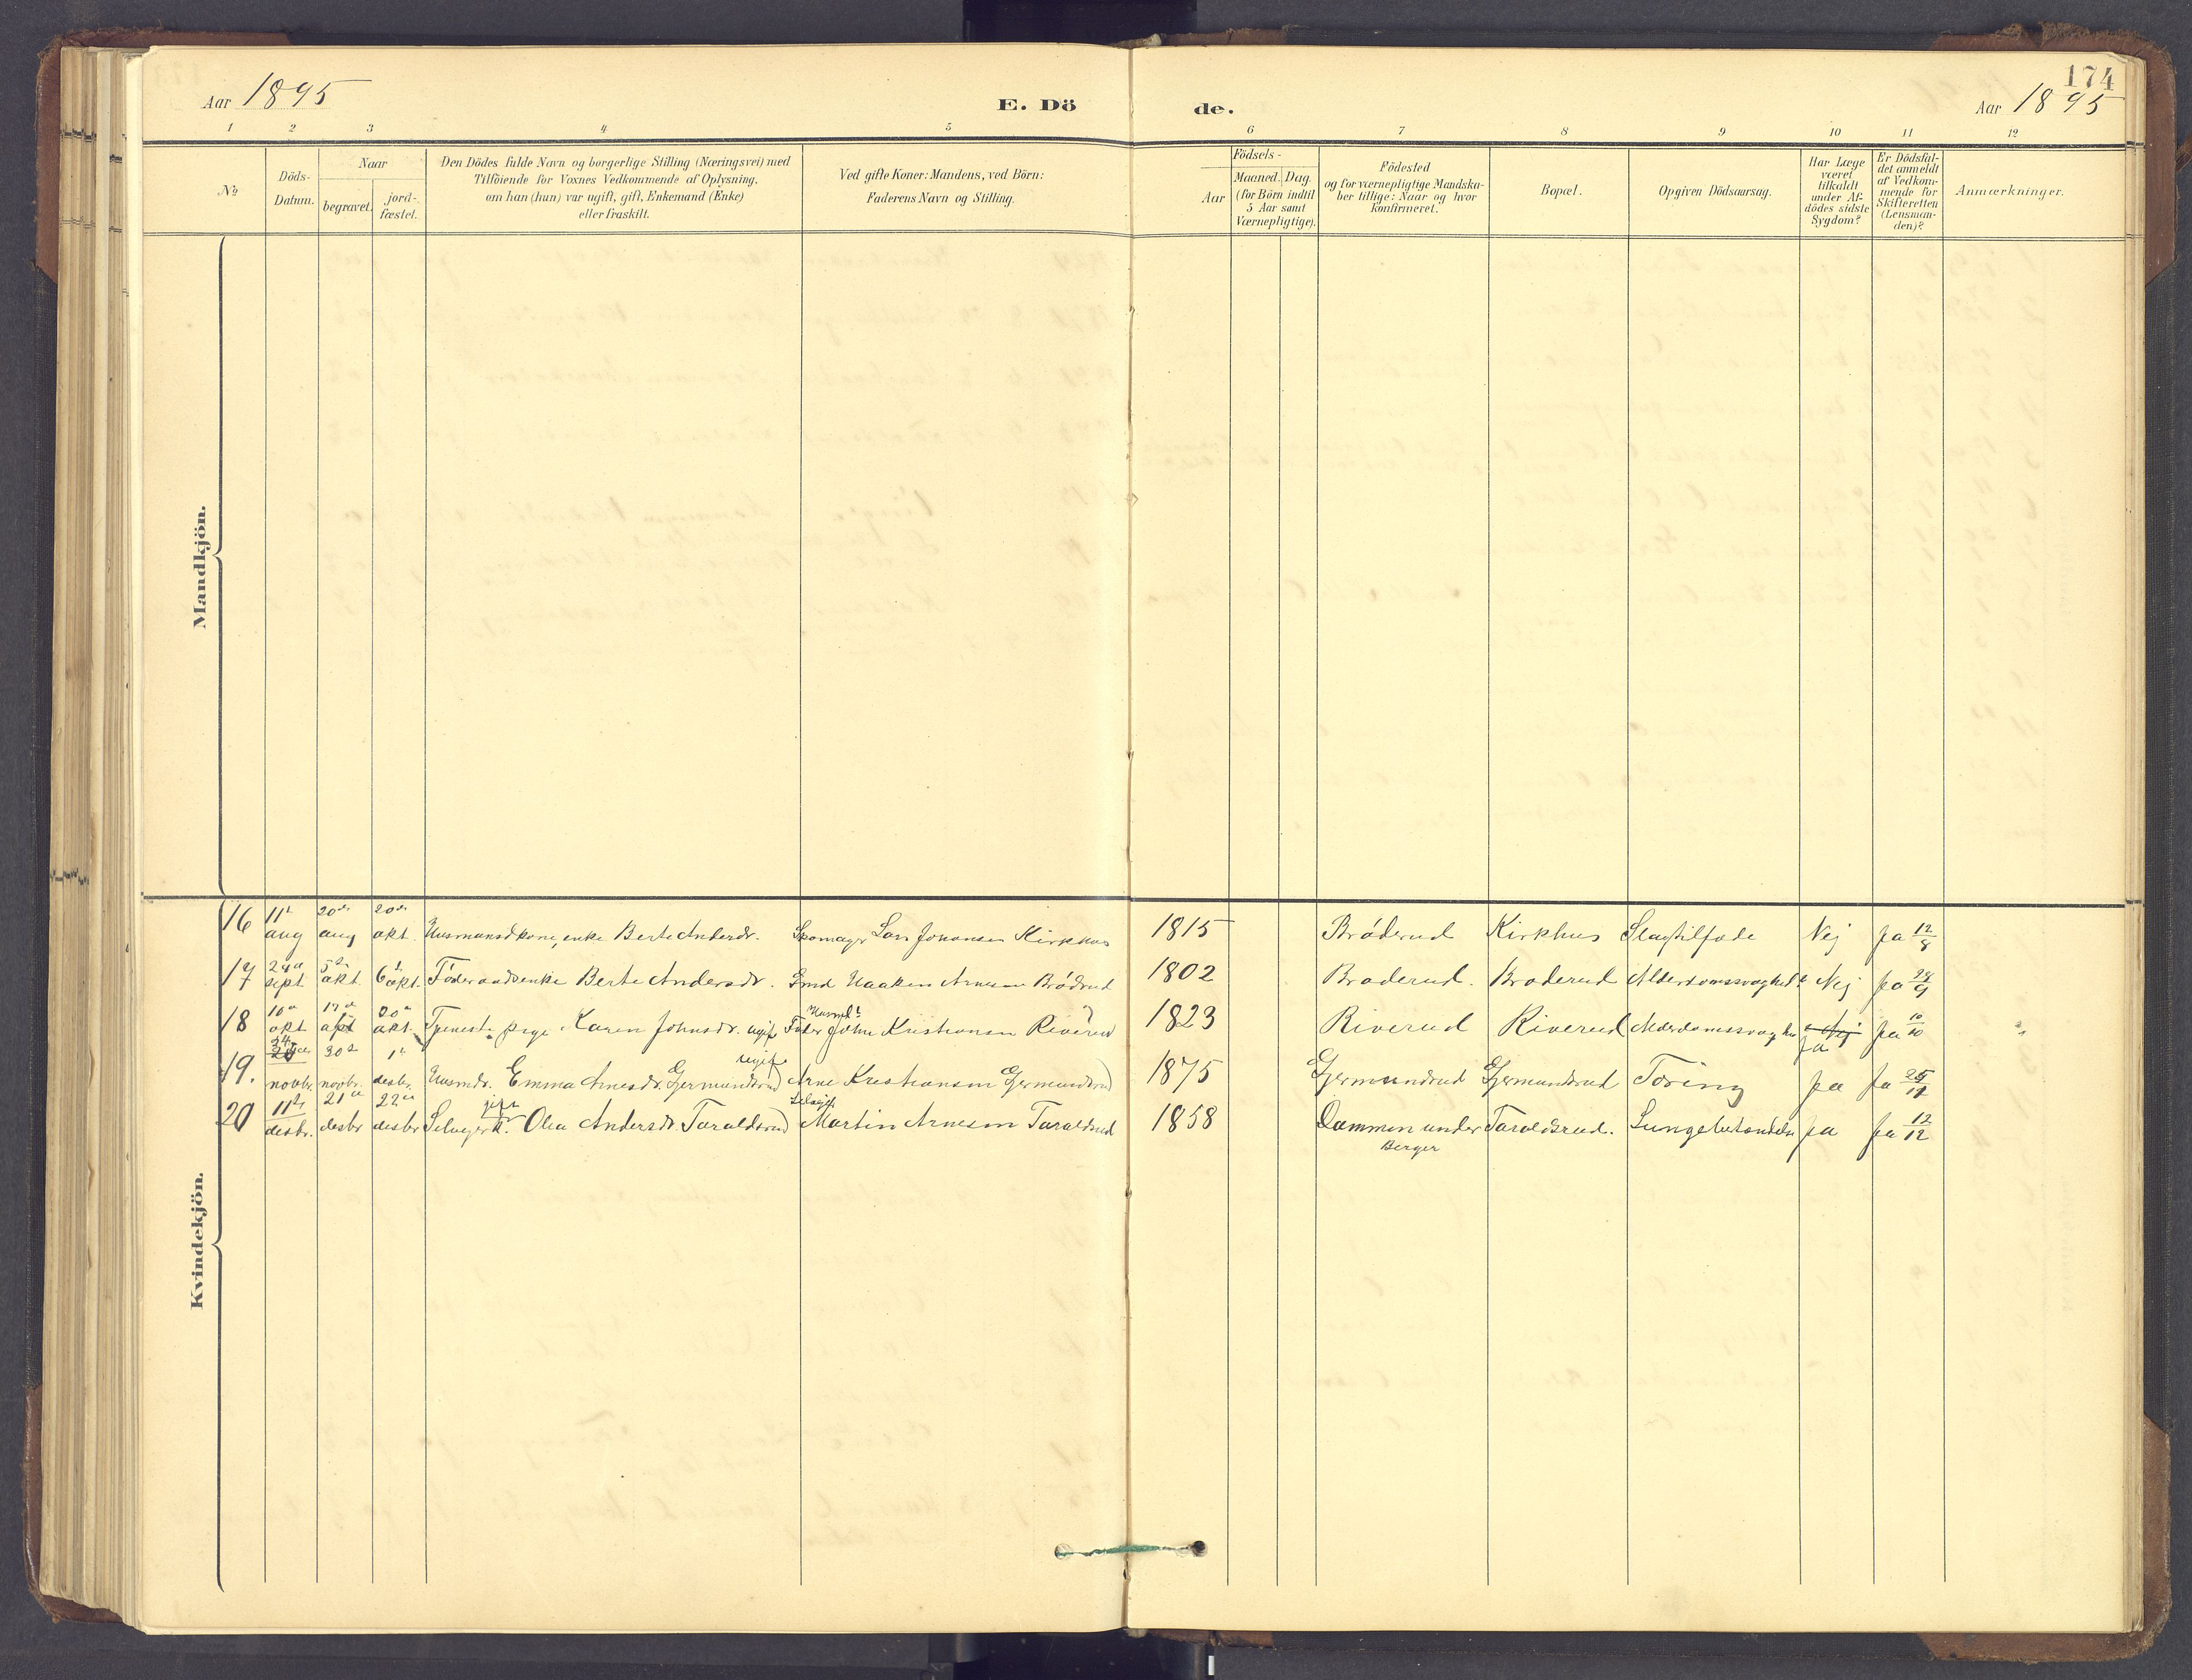 174
Aar 1895
E. Dö
de.
Aar 1895
1 2 3 4 5 6 7 8 9 10 11 12
No
Döds-Datum.
Naar
begravet.
jord-fæstet.
Den Dödes fulde Navn og borgerlige Stilling (Næringsvei) med
Tilföiende for Voxnes Vedkommende af Oplysning,
om han (hun) var ugift, gift, Enkemand (Enke)
eller fraskilt.
Ved gifte Koner: Mandens, ved Börn:
Faderens Navn og Stilling.
Födsels-
Aar
Maaned. Dag.
(for Börn indtil
5 Aar samt
Værnepligtige).
Födested
og for værnepligtige Mandska-
ber tillige: Naar og hvor
konfirmeret.
Bopæl.
Opgiven Dödsaarsag.
Har Læge
været
tilkaldt
under Af-
dödes sidste
Sygdom?
Er Dödsfal-
det anmeldt
af Vedkom-
mende for
Skifteretten
(Lensman-
den)?
Anmærkninger.
Mandkjön.
Kvindekjön.
16 11te aug 20de aug 20de okt. Husmandskone, enke Berte Andersdr. Skomager Lars Johansen Kirkhus 1815 Bröderud Kirkhus Slagtilfælde Nej ja 12/8
17 24de sept. 5te okt. 6te okt. Föderaadsenke Berte Andersdr. Smed Haaken Arnesen Brödrud 1802 Broderud. Broderud Alderdomssvaghed Nej ja 28/9
18 10de okt 19de okt 20de okt. Tjenestepige Karen Johnsdr. ugift Fader Husmd. John Kristiansen Riverud 1823 Riverud Riverud Alderdomssvaghed Nej ja ja 10/10
19. 24de novbr. 30te novbr. 1te desbr. Husmdr. Emma Arnesdr. Germundsrud ugift Arne Kristiansen Germundsrud 1875 Germundsrud Germundsrud Tæring ja ja 25/11
20 11te desbr. 21de desbr 22de desbr Selvejerk. gift Olea Andersdr. Taraldsrud Selvejer Martin Arnesen Taraldsrud 1858 Dammen under Berger Taraldsrud. Lungebetændelse ja ja 12/12